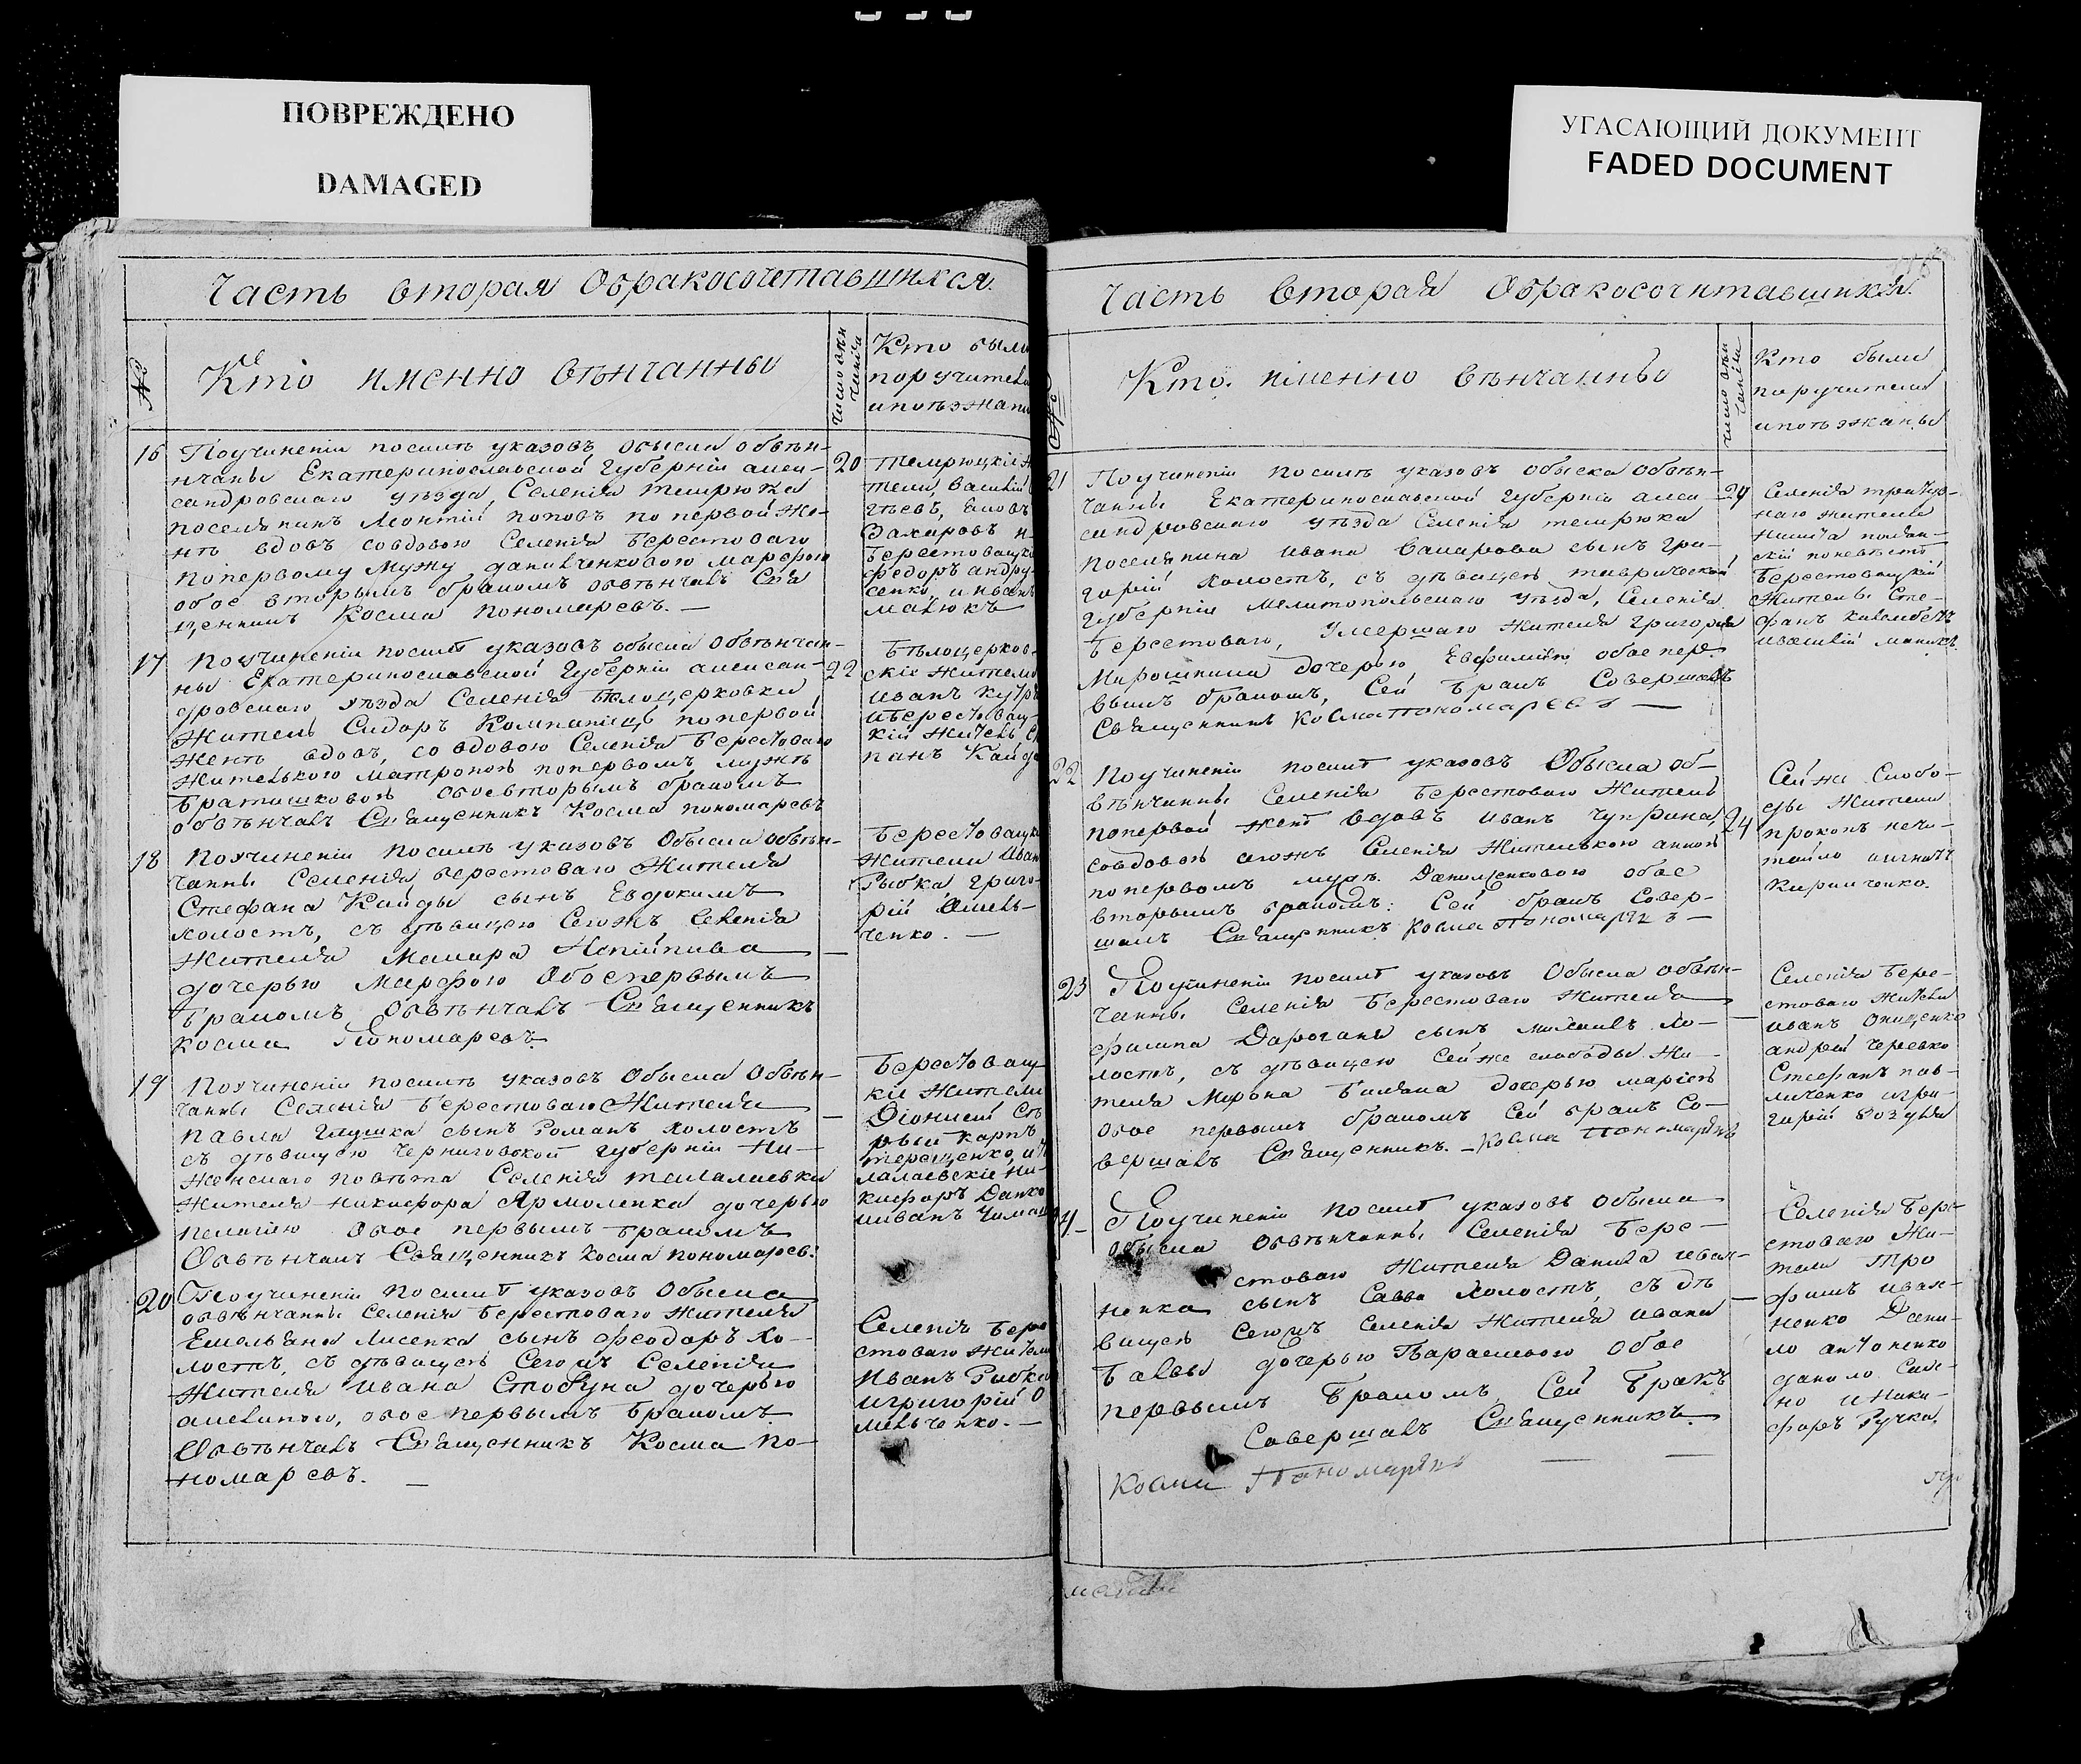 ПОВРЕЖДЕНО
DAMAGED
УГАСАЮЩИЙ ДОКУМЕНТ
FADED DOCUMENT
Часть вторая Обракосочетавшихся.
№
Кто именно вѣнчанны
число вѣн
чанія
Кто были
поручители
16
Поучиненіи посилѣ указовъ обыска обвѣн-
чаны Екатеринославской Губерніи алек-
сандровскаго уѣзда, Селенія темрюка
поселянинъ Леонтій поповъ по первой же-
нѣ вдовъ совдовою Селенія Берестоваго
поперву Мужу данильченковою марфою
обое вторымъ бракомъ обвѣнчалъ Свя
щенникъ Косма пономаревъ. —
20
Темрюцкіе
тели, Василій
Захаровъ и
Берестовацк
федоръ андру-
сенко, и иванъ
малюкъ
17
Поучиненіи посилѣ указовъ обыска Обвѣнчан-
ны Екатеринославской Губерніи алексан-
дровскаго уѣзда Селенія Бѣлоцерковки
житель Сидоръ Компаніецъ попервой
женѣ вдовъ, со вдовою Селенія Берестоваго
жителькою матроною попервомъ мужѣ
Браташковою обоевторымъ бракомъ
обвѣнчалъ Священникъ Косма пономаревъ
22
Бѣлоцерков-
скіе жители
Иванъ
иберестовац-
кій житель
панъ
18
Поучиненіи посилѣ указовъ Обыска обвѣн-
чаны Селенія берестоваго жителя
Стефана Кайды сынъ Евдокимъ
холостъ, съ дѣвицею Сегожъ Селенія
жителя Макара Непійпива
дочерью Марфою Обоепервымъ
бракомъ Обвѣнчалъ Священникъ
Косма Пономаревъ.
—
Берестовацк
жители Иван
Рыбка Григо-
рій Омель-
ченко. —
19
Поучиненіи посилѣ указовъ Обыска Обвѣн-
чаны Селенія Берестоваго Жителя
павла Глушка сынъ Романъ холостъ
съ дѣвицею Черниговской губерніи Нѣ-
женскаго повѣта Селенія талалаевки
жителя никифора Ярмоленка дочерью
пелагіею Обое первымъ бракомъ
Обвѣнчалъ Священникъ Косма пономаревъ.
—
Берестовац-
кіе жители
Діонисій
карпъ
терещенко, и
лалаевскіе Ни-
кифоръ Данко
ииванъ
20
Поучиненіи посилѣ указовъ Обыска
обвѣнчаны Селенія Берестоваго жителя
Емельяна Лисенка сынъ феодоръ хо-
лостъ, съ дѣвицею Сегожъ Селенія
жителя ивана Стобуна дочерью
акелиною, обое первымъ бракомъ
Обвѣнчалъ Священникъ Косма По-
номаревъ. —
Селенія Бере
стоваго жители
Иванъ Рибка
игригорій О
мельченко. —
Часть вторая Обракосочитавшихся.
№
Кто именно вѣнчанны
число вѣн
чанія
Кто были
поручители
21
Поучиненіи посилѣ указовъ обыска обвѣн-
чаны Екатеринославской губерніи алек-
сандровскаго уѣзда Селенія темрюка
поселянина ивана сынъ гри-
горій холостъ, съ дѣвицею таврической
губерніи мелитопольскаго уѣзда, Селенія
Берестоваго, Умершаго жителя григорія
Мирошника дочерью Евфиміею обое пер
вымъ бракомъ, Сей бракъ Совершалъ
Священникъ Косма пономаревъ —
24
Селенія
наго жители
никита
скій поневѣстѣ
Берестовацкій
житель Сте-
фанъ
ивасилій
22
Поучиненіи посилѣ указовъ Обыска об-
вѣнчанны Селенія Берестоваго житель
попервой женѣ вдовъ иванъ Чуприна,
совдовою сегожъ Селенія жителькою анною
попервомъ мужѣ обое
вторымъ бракомъ: Сей бракъ Совер-
шалъ Священникъ Косма Пономаревъ —
24
Сейже Слобо-
ды жители
прокопъ нечи-
тайло иигнатъ
Кириченко.
23
Поучиненіи посилѣ указовъ Обыска обвѣн-
чаны Селенія Берестоваго жителя
филипа Дорогана сынъ михаилъ хо-
лостъ, съ дѣвицею Сейже слободы жи-
теля Мирона Билана дочерью маріею
обое первымъ бракомъ Сей бракъ Со-
вершалъ Священникъ. — Косма Пономаревъ
—
Селенія Бере-
стоваго жители
иванъ Онищенко
андрей Черевко
Стефанъ пав-
личенко игри-
горій Бозуля
Поучиненіи посилѣ указовъ обыска
обыска обвѣнчаны Селенія Бере-
стоваго жителя Данила иван-
ненка сынъ Савва холостъ, съ дѣ
вицею Сегожъ Селенія жителя ивана
Балвы дочерью Параскевою Обое
первымъ бракомъ Сей бракъ
Совершалъ Священникъ.
Косма Пономаревъ — —
—
Селенія Бере-
стоваго жи-
тели Тро
фимъ иван-
ненко Дани-
ло антоненко
данило
но и Ники-
форъ Ручка.